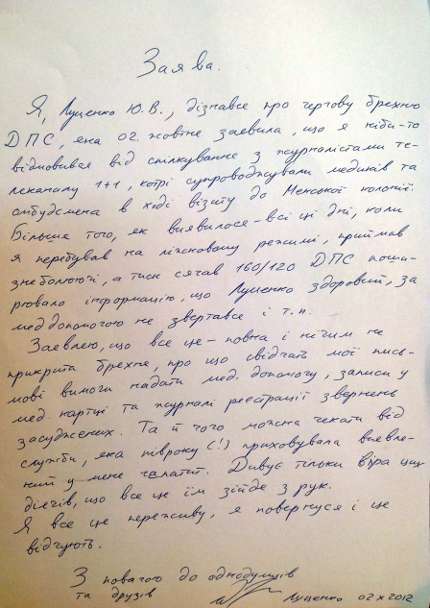 Заява.
Я, Луценко Ю.В., дізнався про чергову брехню
ДПС, яка 02. жовтня заявила, що я нібито
відмовився від спілкування з журналістами те-
леканалу 1+1, котрі супроводжували медиків та
омбудсмена в ході візиту до Менської колонії.
Більше того, як виявилося - всі ці дні, коли
я перебував на ліжковому режимі, приймав
знеболюючі, а тиск сягав 160/120 ДПС поши-
рювало інформацію, що Луценко здоровий, за
меддопомогою не звертався і т.п.
Заявлею, що все це - повна і нічим не
прикрита брехня, про що свідчать мої пись-
мові вимоги надати мед. допомогу, записи у
мед. картці та журналі реєстрації звернень
засуджених. Та й чого можна чекати від
служби, яка півроку (!) приховувала виявле-
ний у мене гепатит. Дивує тільки віра цих
діячів, що все це їм зійде з рук.
Я все це переживу, я повернуся і це
відчують.
З повагою до однодумців
та друзів
Луценко 02 X 2012